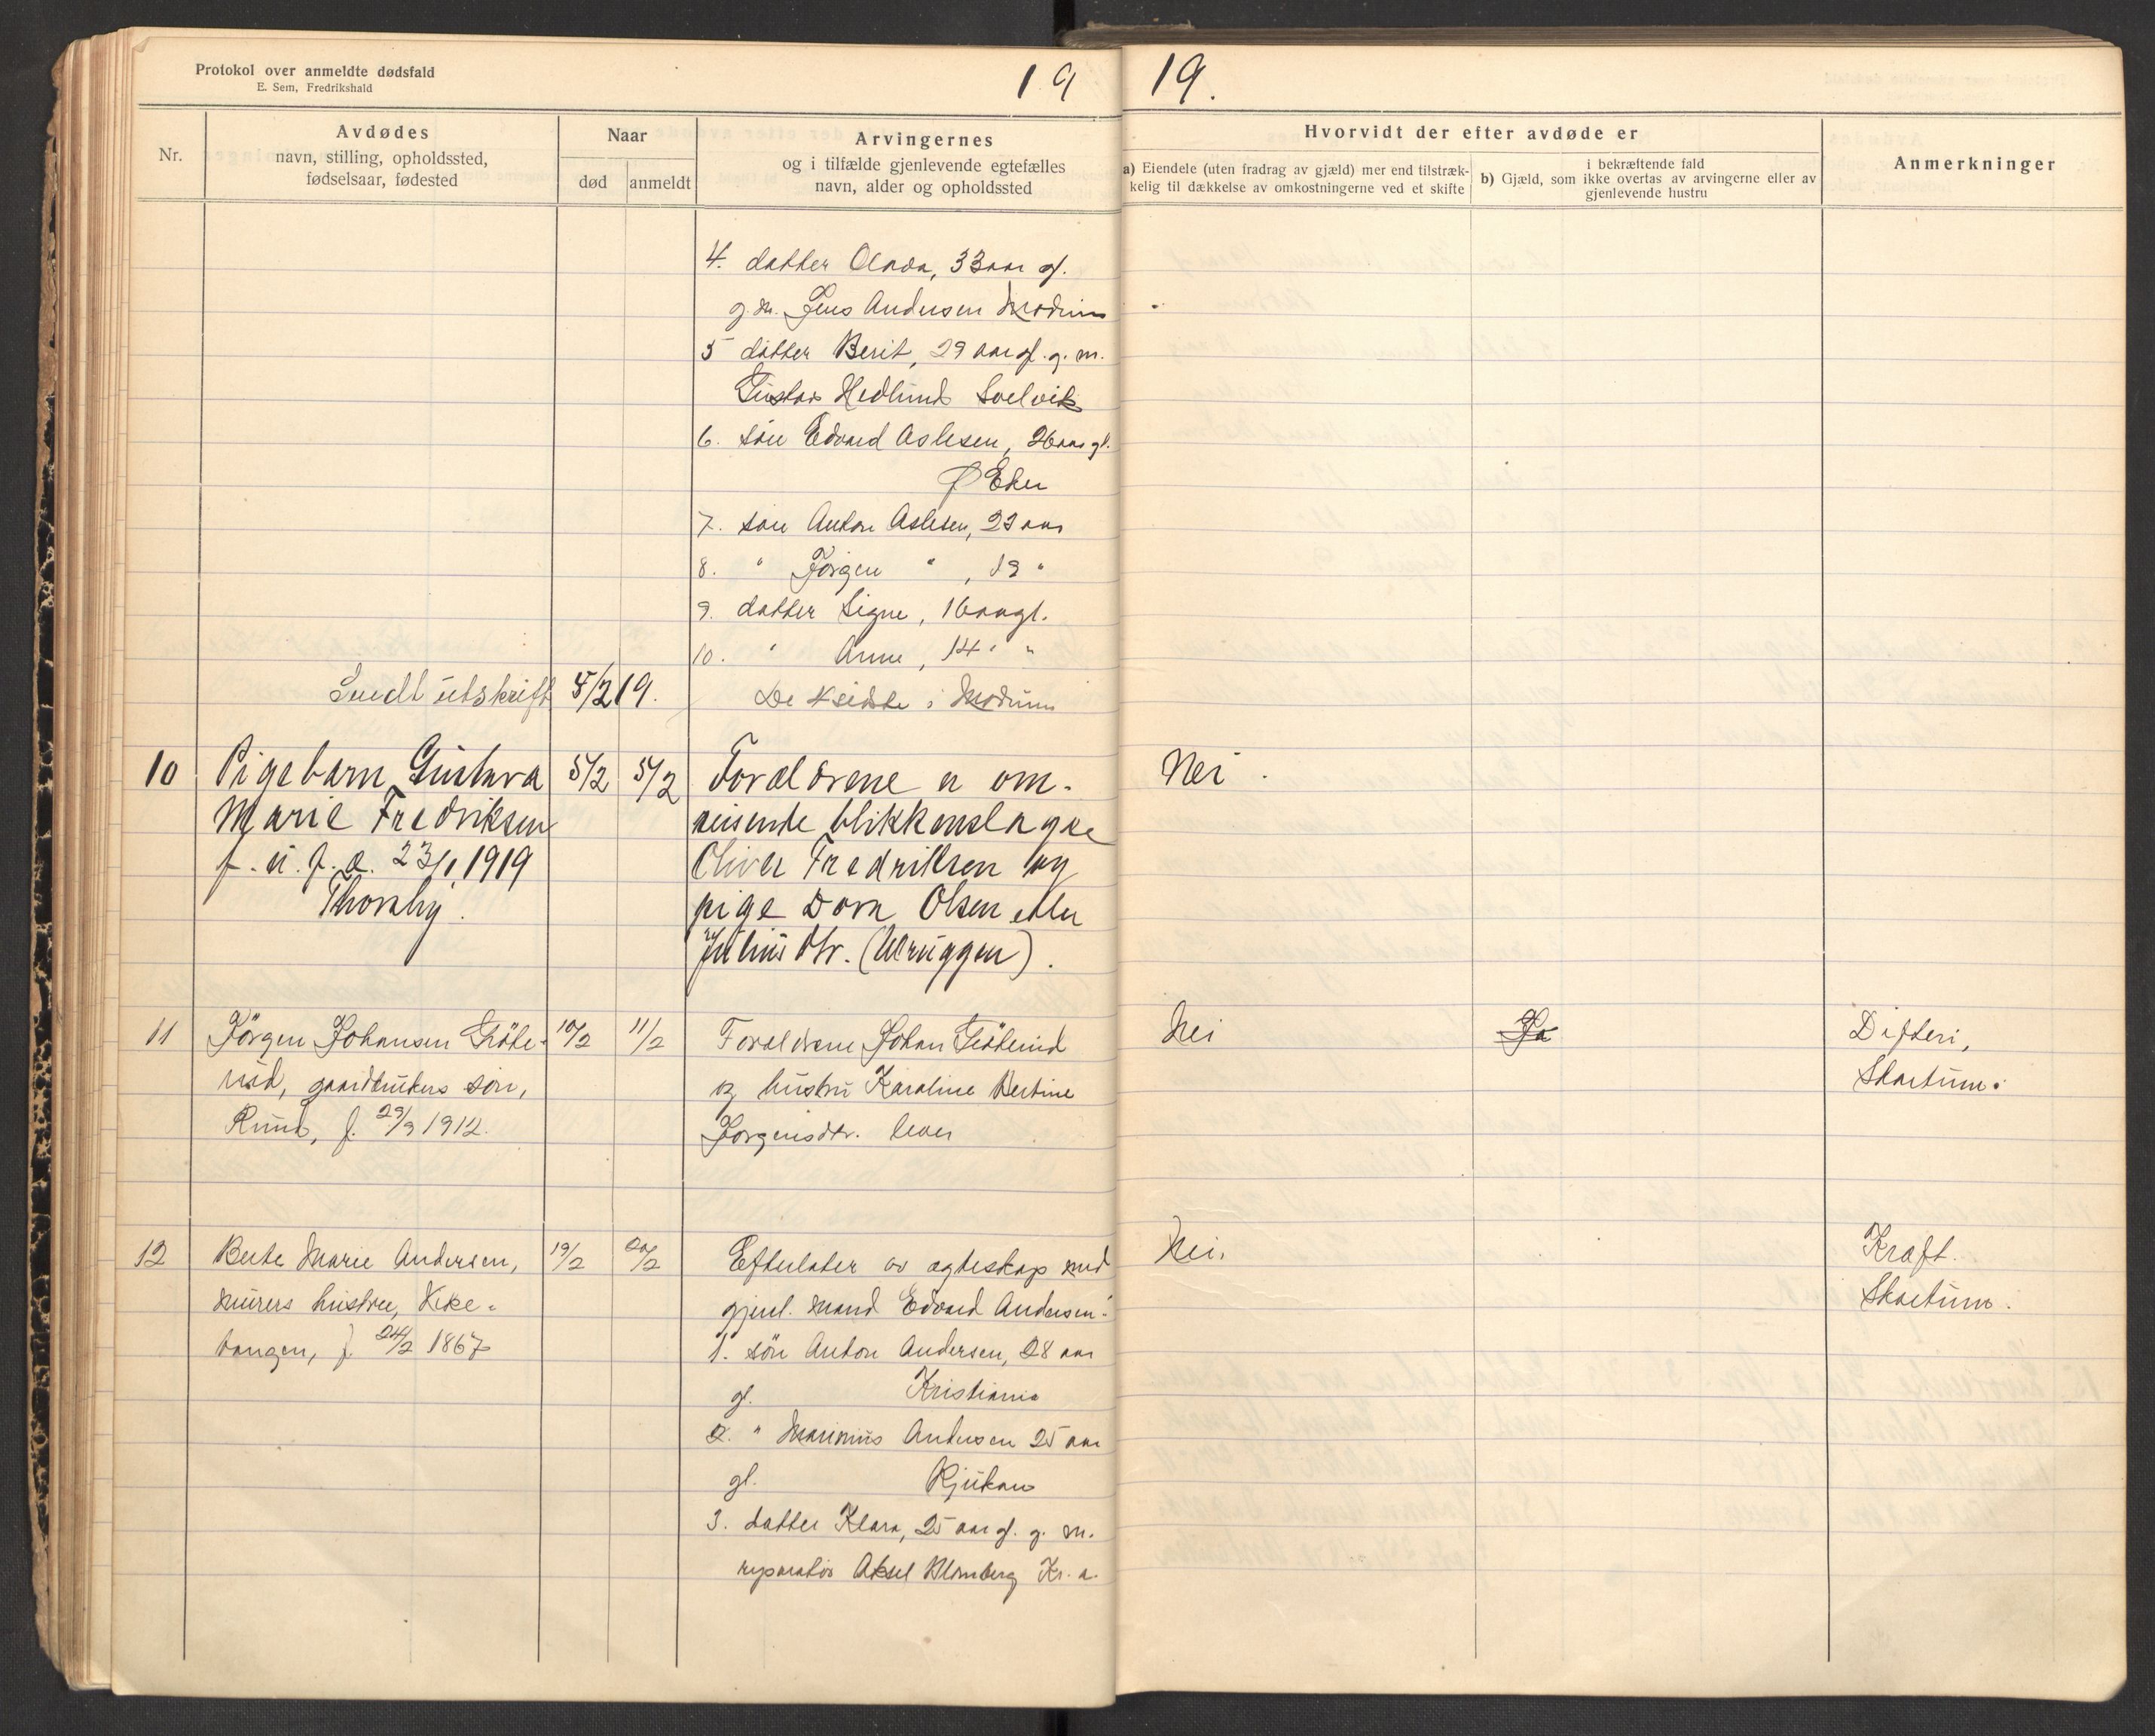 Protokol over anmeldte dødsfald
E. Sem, Fredrikshald
19
19.
Nr.
Avdødes
navn, stilling, opholdssted,
fødselsaar, fødested
Naar
død
anmeldt
Arvingernes
og i tilfælde gjenlevende egtefælles
navn, alder og opholdssted
Hvorvidt der efter avdøde er
a) Eiendele (uten fradrag av gjæld) mer end tilstræk-
kelig til dækkelse av omkostningerne ved et skifte
i bekræftende fald
b) Gjæld, som ikke overtas av arvingerne eller av
gjenlevende hustru
Anmerkninger
4. datter Olava, 33 aar gl.
g.m. Jens Andersen Modum
5 datter Berit, 29 aar gl. g. m.
Gustav Hedlund Svelvik
6. søn Edvard Aslesen, 26 aar gl.
Ø Eker
7. søn Anton Aslesen, 23 aar
8. " Jørgen " , 19 "
9. datter Signe, 16 aar gl.
10. " Anne, 14 " "
Sendt utskrift 5/2 19.
De 4 sidste i Modum
10 Pigebarn Gustava 5/2 5/2 Forældrene er om-
Marie Fredriksen reisende blikkenslager
f. u. f. æ. 23/1 1919 Oliver Fredriksen og
Thoraby. pige Dora Olsen eller
Julius dtr. (Bruggen).
Nei.
11 Jörgen Johansen 10/2 11/2 Forældrene Johan
rud, gaardbrukers søn, og hustru Karoline Bertine
f. 29/9 1912. Jørgensdtr. lever
Nei
Ja
Difteri,
Skartum.
12 Berte Marie Andersen, 19/2 20/2 Efterlater av egteskap med
murers hustru, Vike- gjenl. mand Edvard Andersen:
vangen, f. 24/2 1867 1. søn Anton Andersen, 28 aar
gl. Kristiania
2. " Marinius Andersen 25 aar
gl. Rjukan
3. datter Klara, 25 aar gl. g. m.
reparatør Aksel Blomberg Kr.a.
Nei.
Kræft.
Skartum.